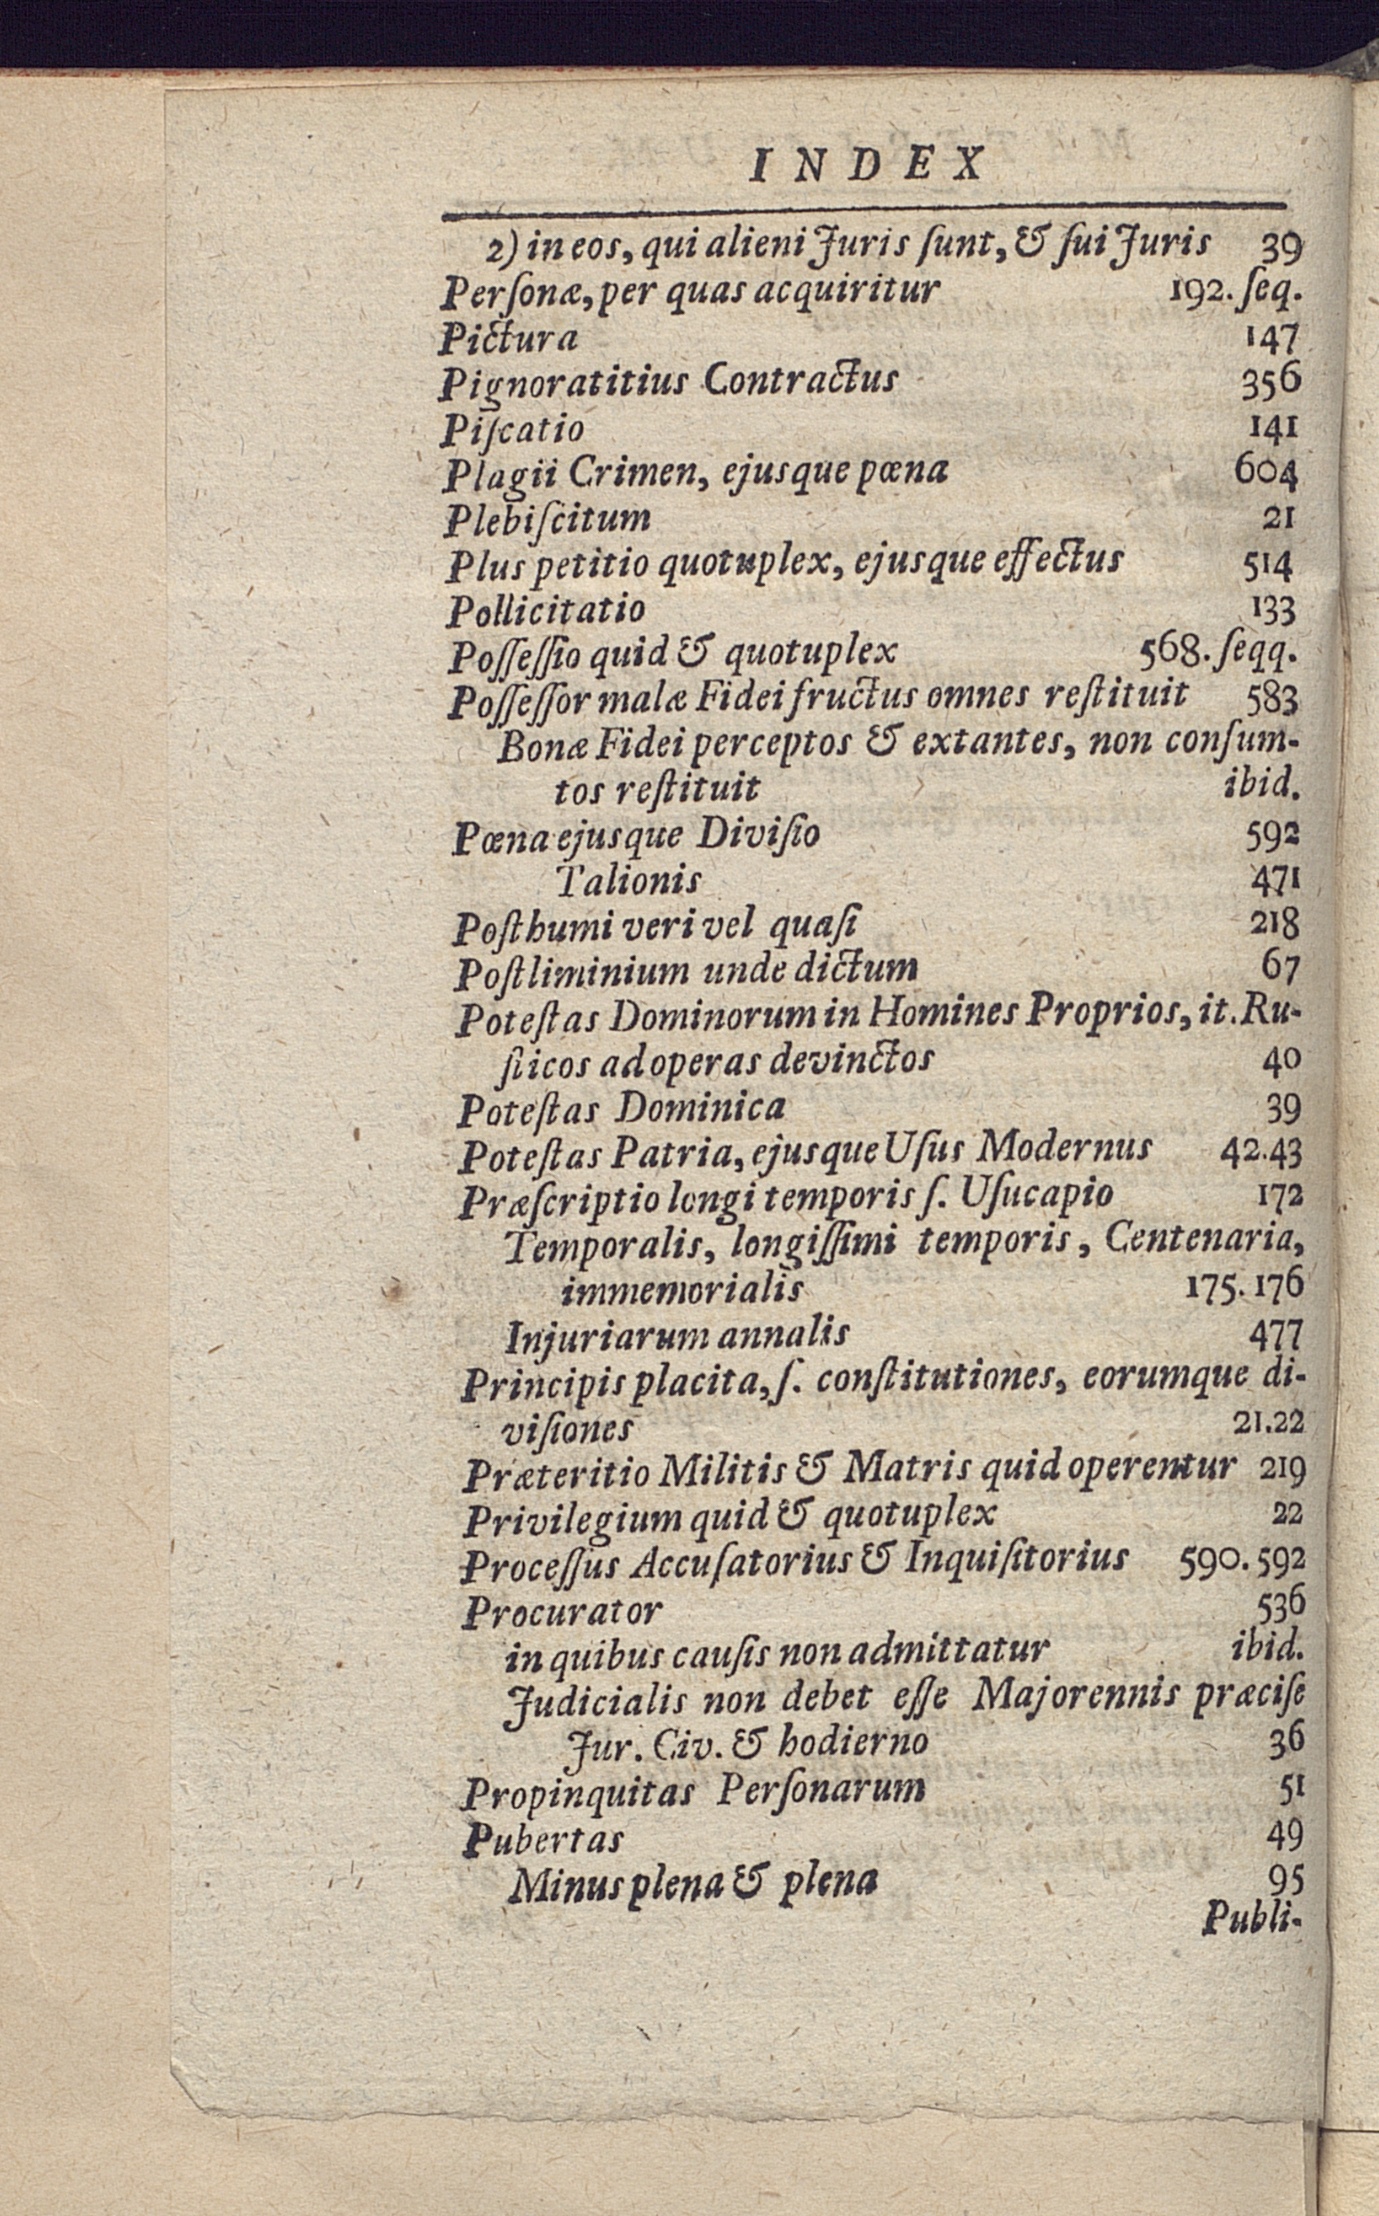 INDEX
2) in eos, qui alieni Juris ſunt, & ſui Juris 39
Perſonæ, per quas acquiritur 192. ſeq.
Pictura 147
Pignoratitius Contractus 356
Piſcatio 141
Plagii Crimen, ejusque pœna 604
Plebiſcitum 21
Plus petitio quotuplex, ejusque effectus 514
Pollicitatio 133
Poſſeſſio quid & quotuplex 568. ſeqq.
Poſſeſſor malæ Fidei fructus omnes reſtituit 583
Bonæ Fidei perceptos & extantes, non conſum-
tos reſtituit ibid.
Pœna ejusque Diviſio 592
Talionis 471
Poſthumi veri vel quaſi 218
Poſtliminium unde dictum 67
Poteſtas Dominorum in Homines Proprios, it. Ru-
ſticos ad operas devinctos 40
Poteſtas Dominica 39
Poteſtas Patria, ejusque Uſus Modernus 42.43
Præſcriptio longi temporis ſ. Uſucapio 172
Temporalis, longiſſimi temporis, Centenaria,
immemorialis 175. 176
Injuriarum annalis 477
Principis placita, ſ. conſtitutiones, eorumque di-
viſiones 21.22
Præteritio Militis & Matris quid operentur 219
Privilegium quid & quotuplex 22
Proceſſus Accuſatorius & Inquiſitorius 590. 592
Procurator 536
in quibus cauſis non admittatur ibid.
Judicialis non debet eſſe Majorennis præciſe
Jur. Civ. & hodierno 36
Propinquitas Perſonarum 51
Pubertas 49
Minus plena & plena 95
Publi-